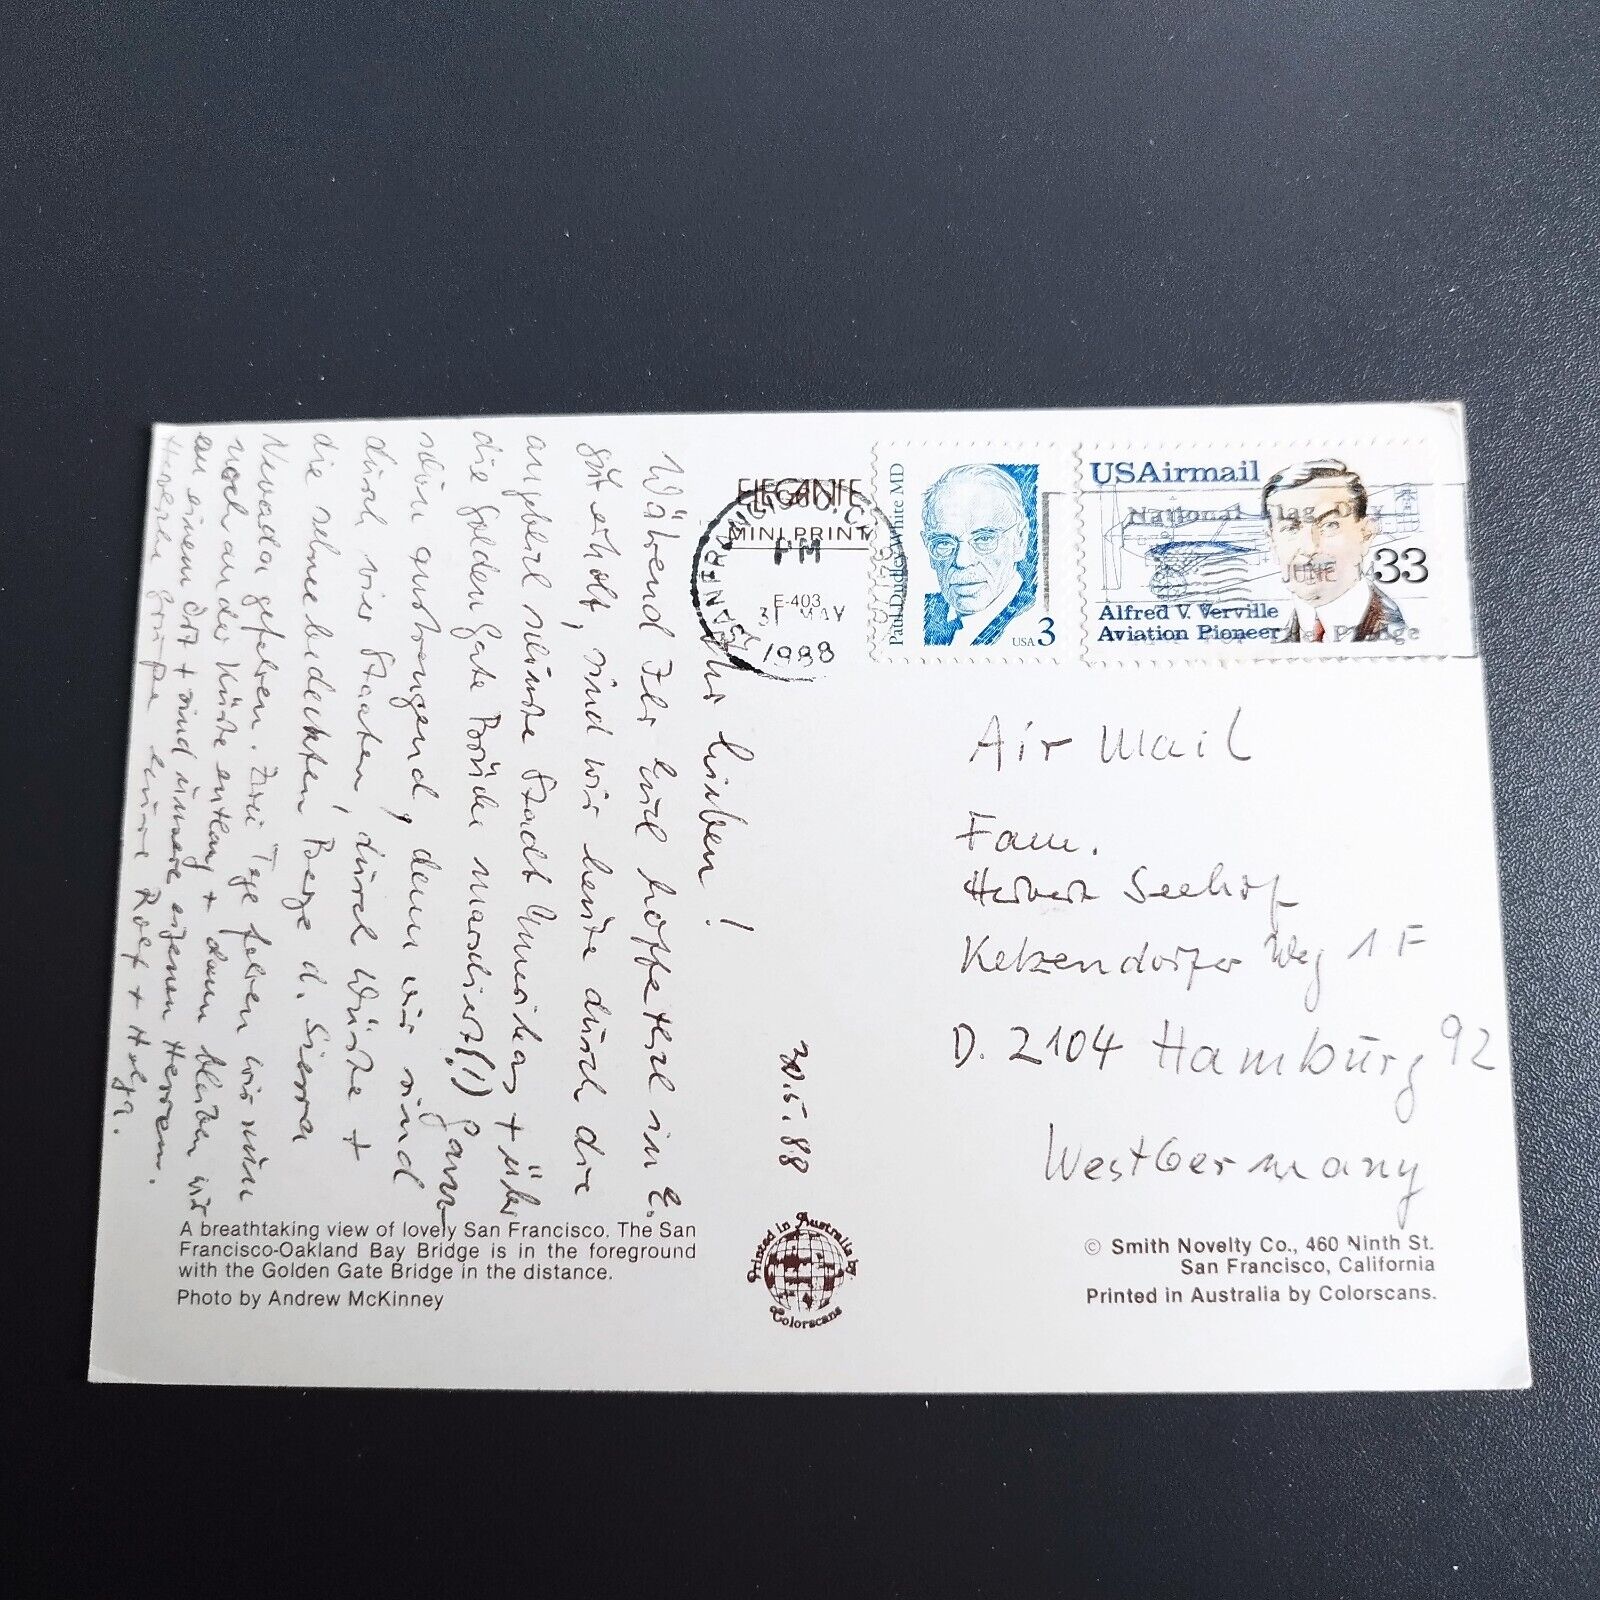 ELEGANTE
MINI PRINT
SAN FRANCISCO, CA
PM
E-403
31 MAY
1988
Paul Dudley White MD
USA 3
USAirmail
National Flag Day
JUNE 14
33
Alfred V. Verville
Aviation Pioneer
Pledge
30.5.88
Ihr lieben!
Während Ihr Euch hoffentlich in E.
gut erholt, sind wir heute durch die
angeblich schönste Stadt Amerikas + über
die Golden Gate Brücke marschiert(!) Ganz
schön anstrengend, denn wir sind
durch vier Staaten, durch Wüste +
die schneebedeckten Berge d. Sierra
Nevada gefahren. Zwei Tage fahren wir nun
noch an der Küste entlang + dann bleiben wir
an einem Ort + sind unsere eigenen Herren.
Herzliche Grüße Eure Rolf + Helga.
Air Mail
Fam.
Herbert Seehof
Ketzendorfer Weg 1F
D. 2104 Hamburg 92
West Germany
A breathtaking view of lovely San Francisco. The San
Francisco-Oakland Bay Bridge is in the foreground
with the Golden Gate Bridge in the distance.
Photo by Andrew McKinney
Printed in Australia by
Colorscans
© Smith Novelty Co., 460 Ninth St.
San Francisco, California
Printed in Australia by Colorscans.